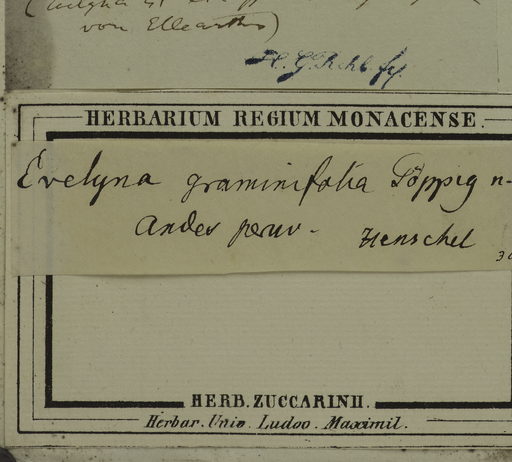 von Elleanthus)
H. G. Rchb. f.
HERBARIUM REGIUM MONACENSE.
Evelyna graminifolia Pöppig n-
Andes peruv. Henschel
HERB. ZUCCARINII.
Herbar. Univ. Ludov. Maximil.